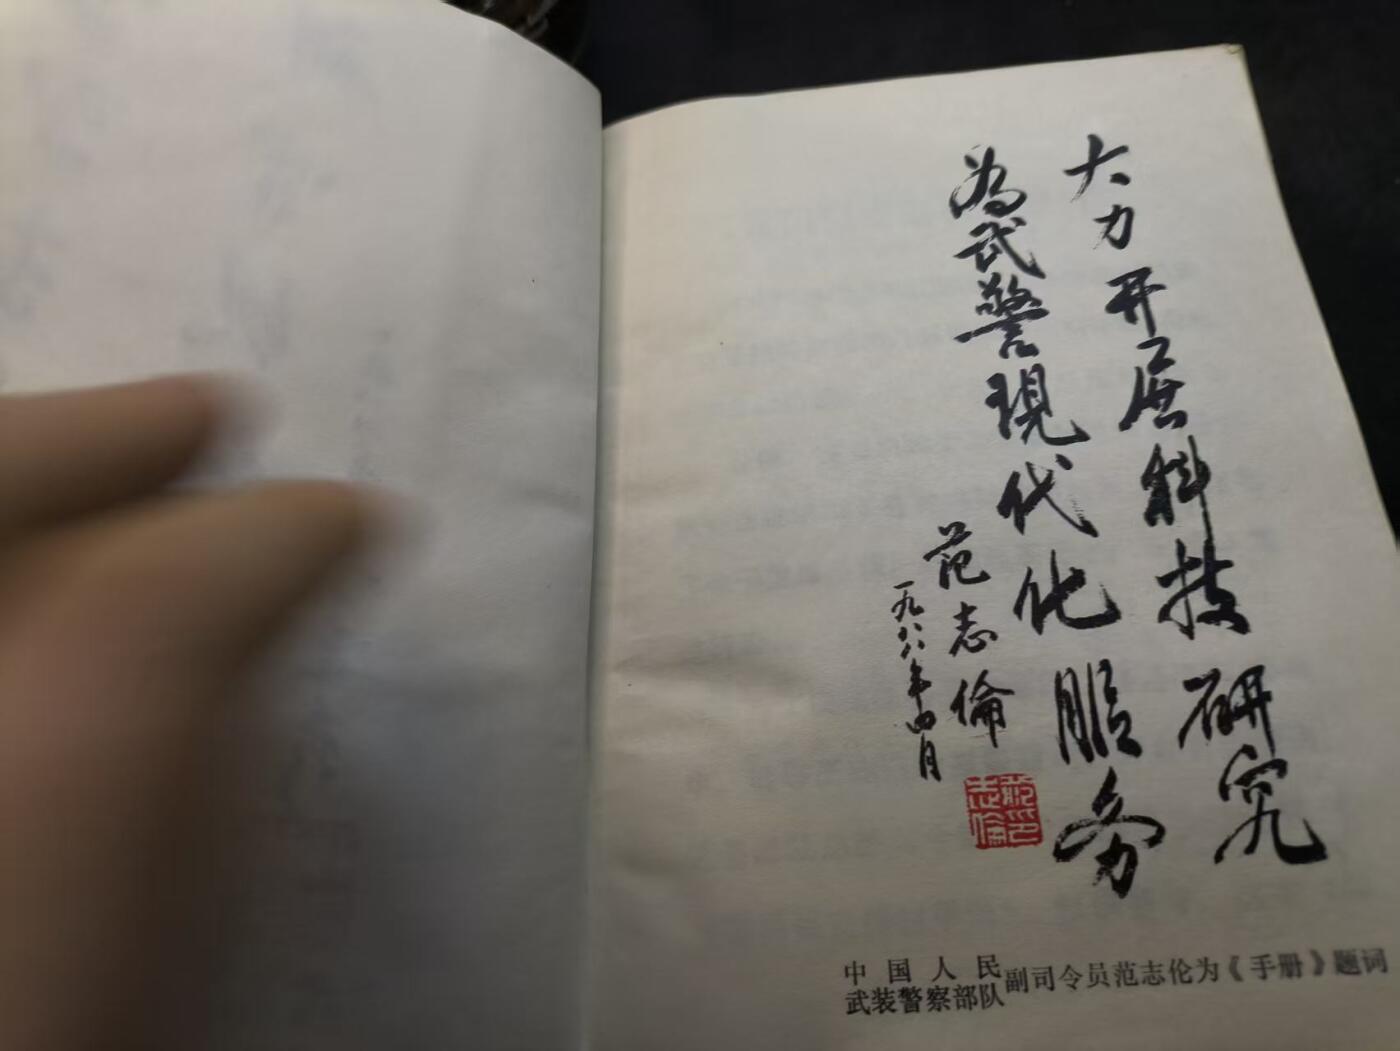 大力开展科技研究
为武警现代化服务
范志倫
一九八八年四月
范印志倫
中国人民武装警察部队副司令员范志伦为《手册》题词